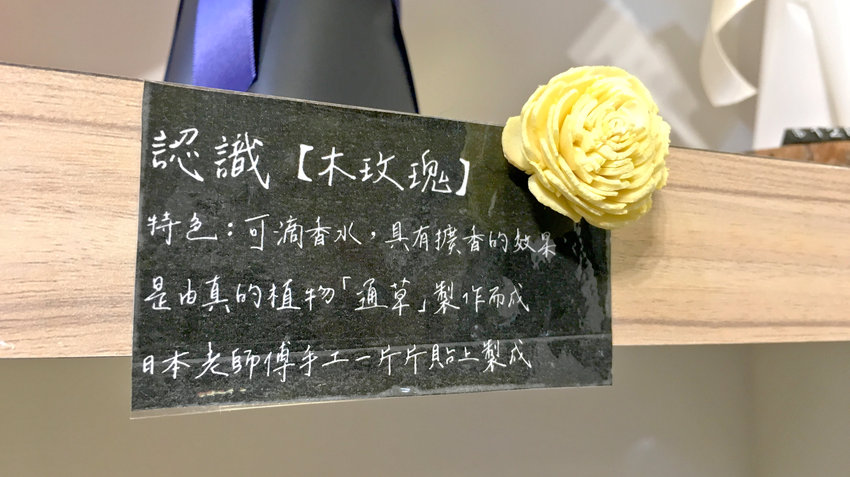 認識【木玫瑰】
特色：可滴香水，具有擴香的效果
是由真的植物「通草」製作而成
日本老師傅手工一片片貼上製成